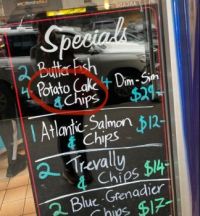 Specials
2 Butter Fish
4 Potato Cake 4 Dim-Sim
& Chips $29-
1 Atlantic-Salmon $12-
& Chips
2 Trevally
& Chips $14-
2 Blue-Grenadier
Chips $17-